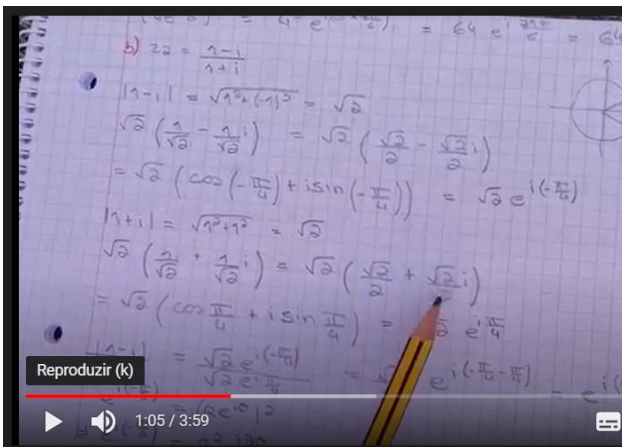 = 64 e^{i 21π/6} = 64
b) z2 = (1-i)/(1+i)
|1-i| = √(1²+(-1)²) = √2
√2 (1/√2 - 1/√2 i) = √2 (√2/2 - √2/2 i)
= √2 (cos(-π/4) + i sin(-π/4)) = √2 e^{i(-π/4)}
|1+i| = √(1²+1²) = √2
√2 (1/√2 + 1/√2 i) = √2 (√2/2 + √2/2 i)
= √2 (cos π/4 + i sin π/4) = √2 e^{i π/4}
= √2 e^{i(-π/4)} / √2 e^{i π/4} = e^{i(-π/4 - π/4)} = e^{i(
Reproduzir (k)
1:05 / 3:59